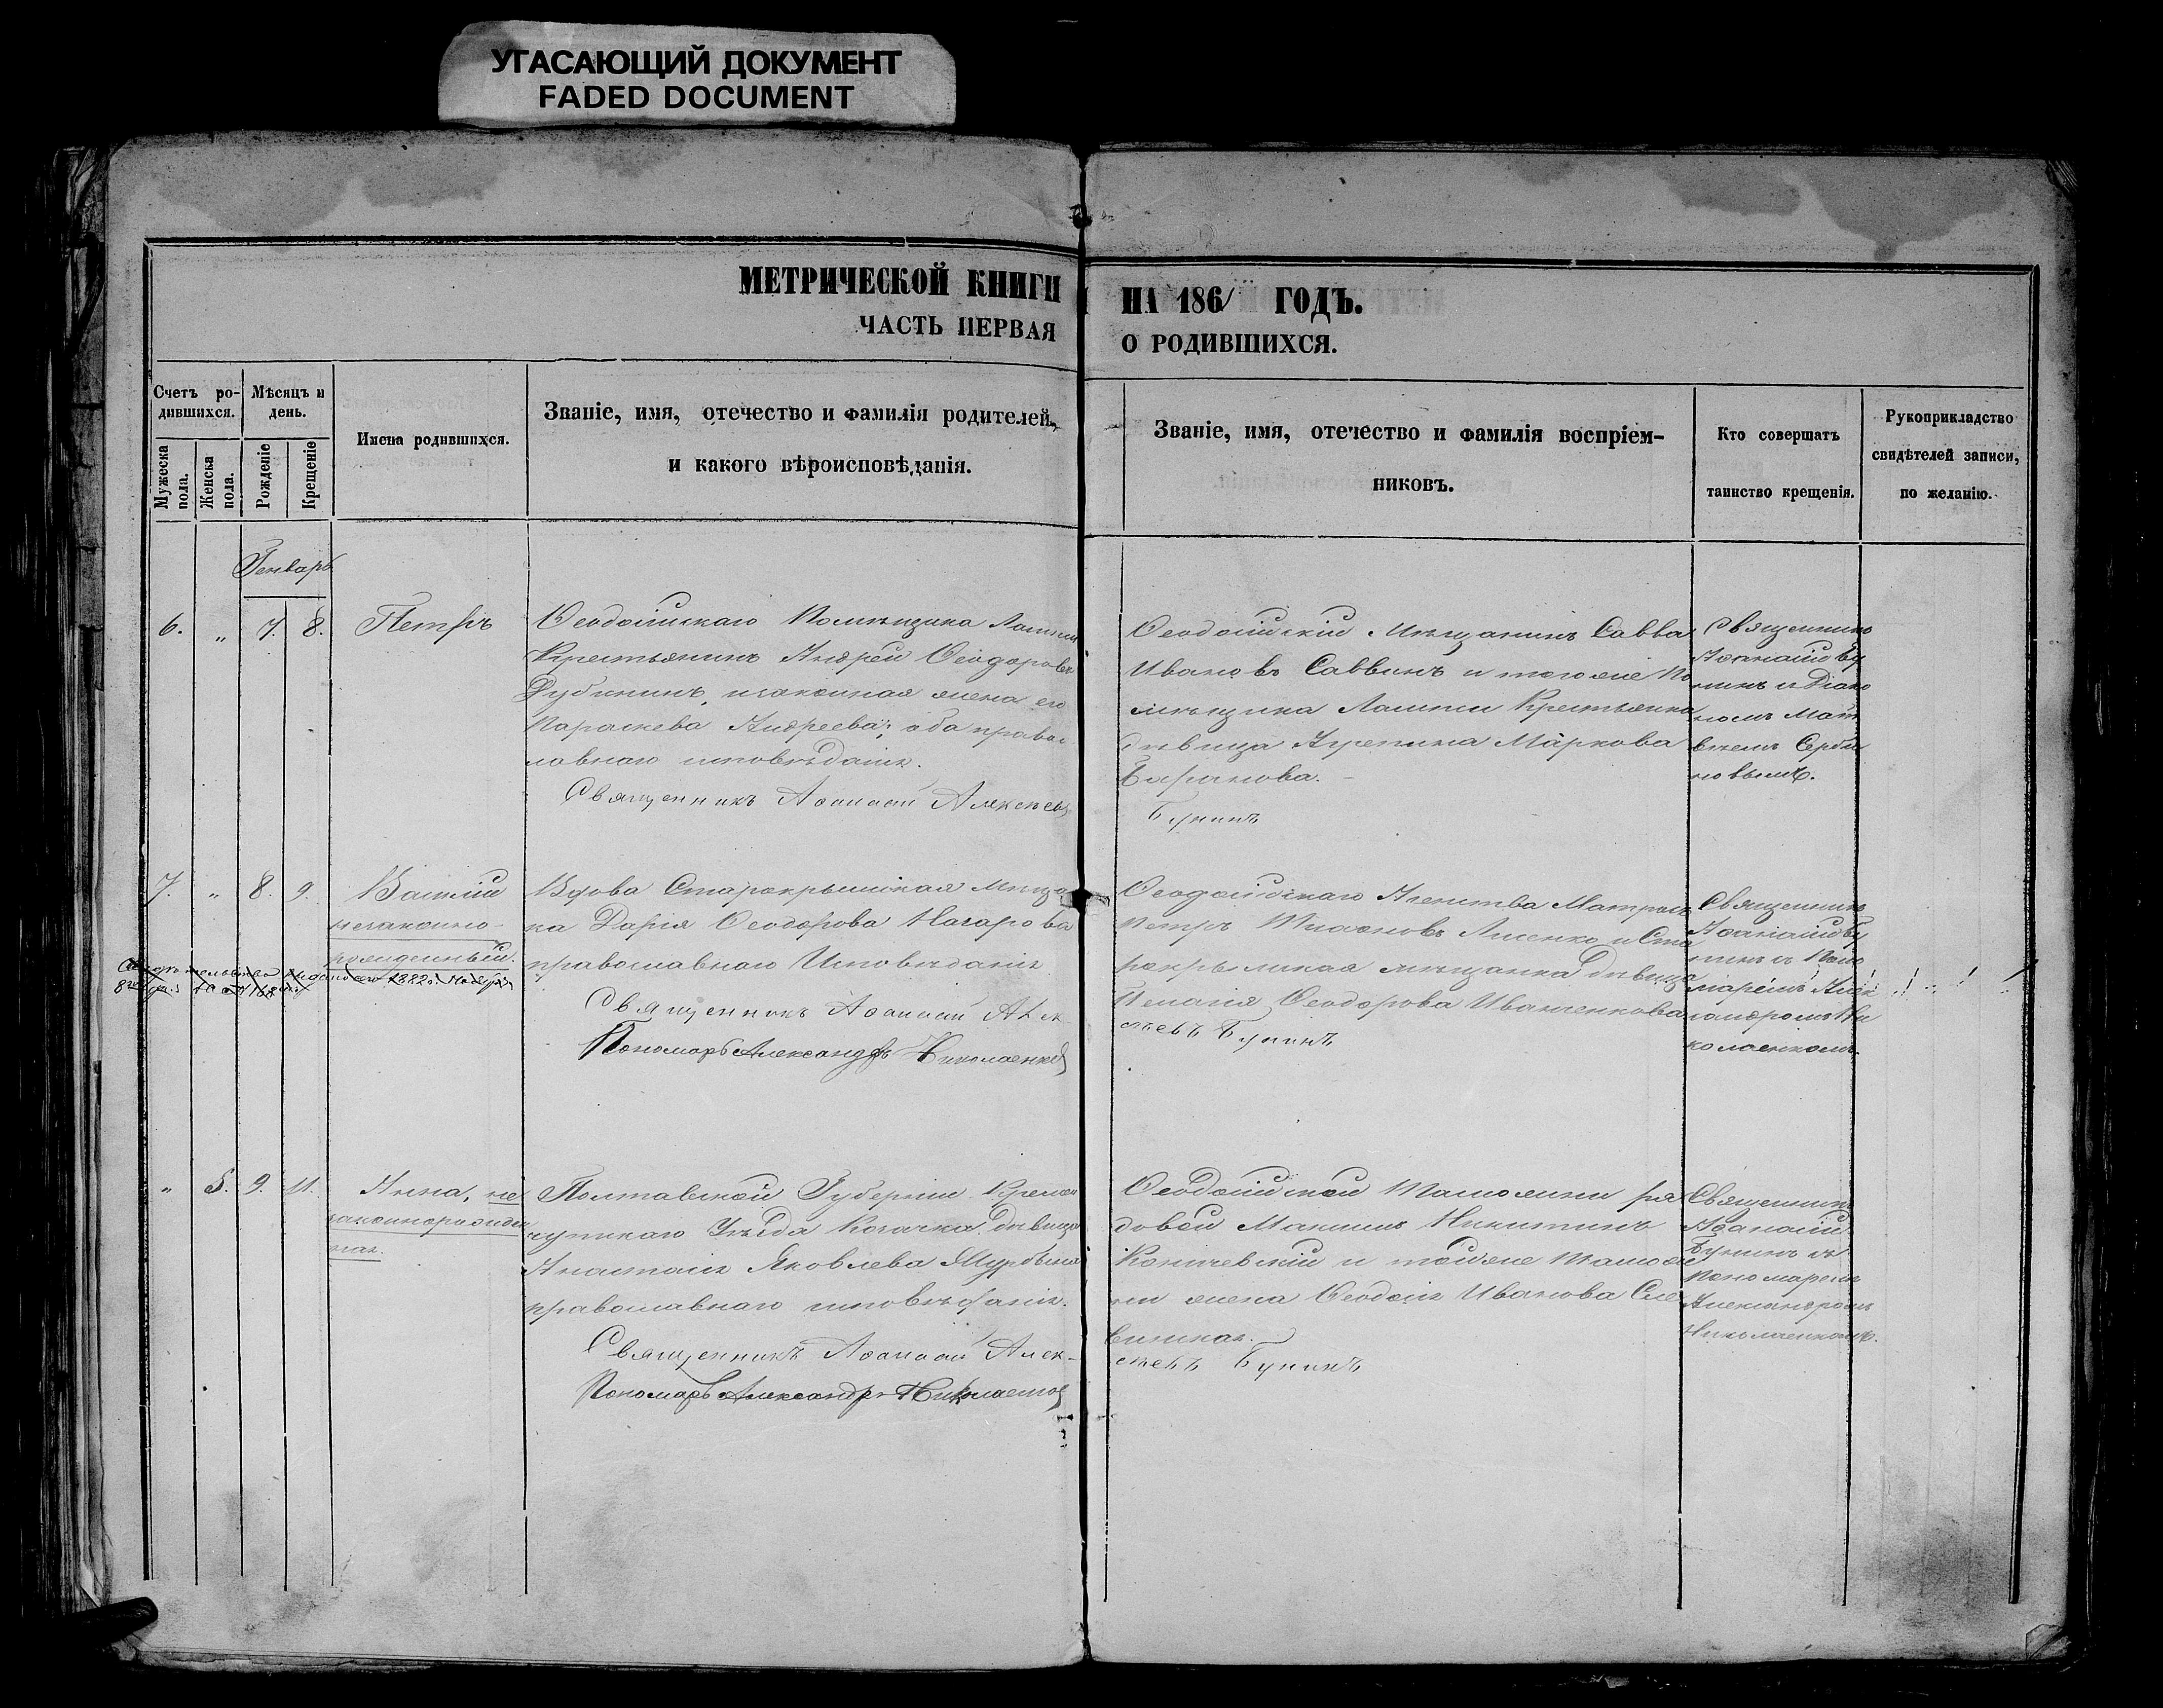 УГАСАЮЩИЙ ДОКУМЕНТ
FADED DOCUMENT
МЕТРИЧЕСКОЙ КНИГИ
ЧАСТЬ ПЕРВАЯ
НА 1861 ГОДЪ.
О РОДИВШИХСЯ.
Счетъ ро-
дившихся.
Мѣсяцъ и
день.
Мужеска
пола.
Женска
пола.
Рожденіе
Крещеніе
Имена родившихся.
Званіе, имя, отечество и фамилія родителей,
и какого вѣроисповѣданія.
Званіе, имя, отечество и фамилія воспріем-
никовъ.
Кто совершатъ
таинство крещенія.
Рукоприкладство
свидѣтелей записи,
по желанію.
Генварь
6. „ 7. 8. Петръ
Ѳеодосійскаго Помѣщика
Крестьянинъ Андрей Ѳеодоровъ
Дубининъ, изаконная жена его
Параскева Андреева; оба право-
славнаго исповѣданія.
Священникъ Аѳанасій Алексѣевъ
Ѳеодосійскій Мѣщанинъ Савва
Ивановъ Саввинъ и тогоже По
мѣщика Крестьянка
дѣвица Маркова
Баранова.
Бунинъ
Священникъ
Аѳанасій Бу
нинъ съ Діако
номъ Мат
вѣемъ Серби
новымъ.
7. „ 8. 9. Василій
незаконно-
рожденный.
Вдова Старокрымская Мѣща
ка Дарія Ѳеодорова Назарова
православнаго Исповѣданія
Священникъ Аѳанасій Алек
Пономарь Александръ Николаенко
Ѳеодосійскаго Агентства Матросъ
Петръ Лисенко и Ста
рокрымская мѣщанка дѣвица
Пелагія Ѳеодорова Иванченкова
сѣевъ Бунинъ
Священникъ
Аѳанасій Бу
нинъ съ Поно
маремъ Алек
сандромъ Ни
колаенкомъ.
„ 5. 9. 11. Анна, не
законнорожден
ная.
Полтавской Губерніи Кремен
чугскаго Уѣзда Козачка дѣвица
Анастасія Яковлева
православнаго исповѣданія.
Священникъ Аѳанасій Алек-
Пономарь Александръ Николаенко
Ѳеодосійской Таможни ря
довой Максимъ Никитинъ
и тойже Таможе
ни жена Ѳеодосія Иванова Сле
винская.
сѣевъ Бунинъ
Священникъ
Аѳанасій
Бунинъ съ
Пономаремъ
Александромъ
Николаенкомъ.